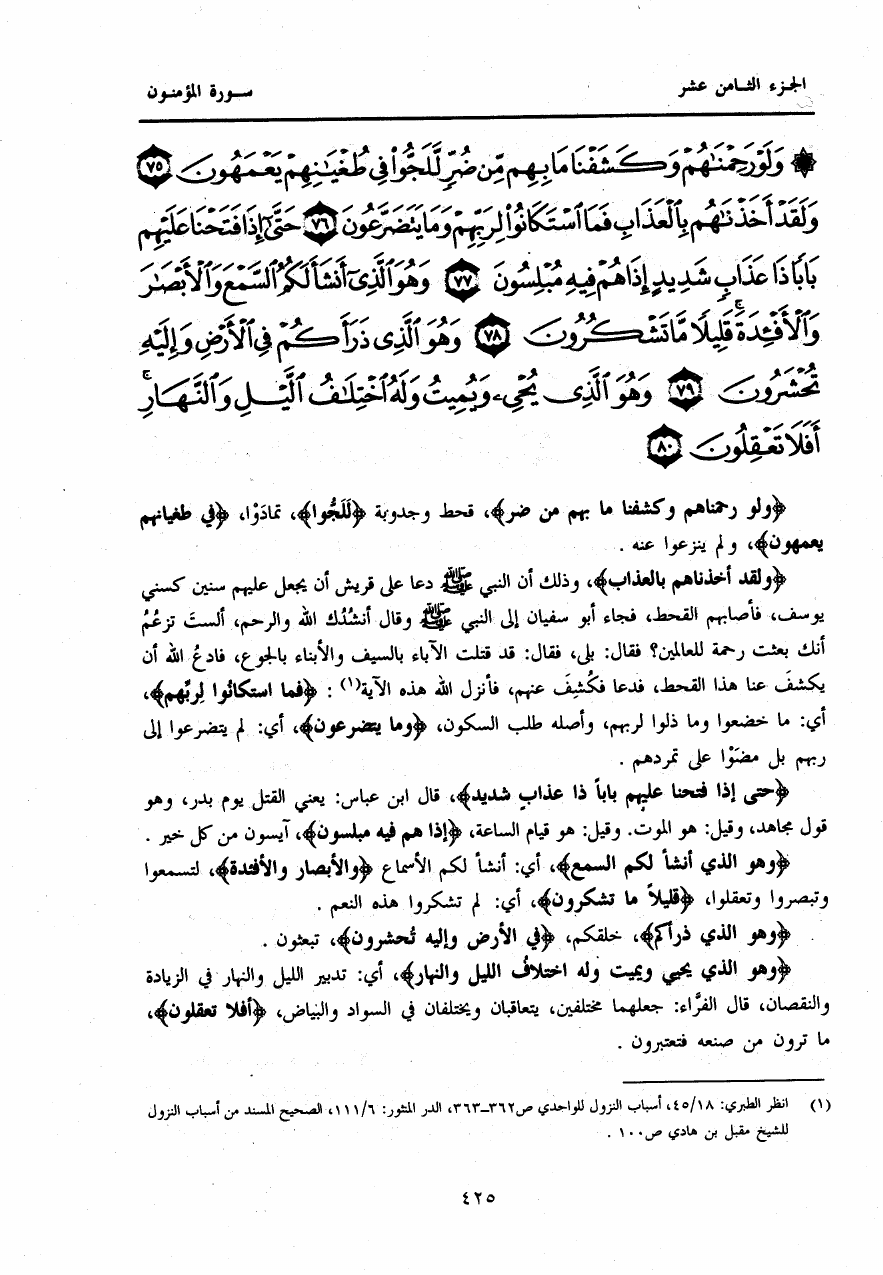 الجزء الثامن عشر
سورة المؤمنون
۞ وَلَوْ رَحِمْنَٰهُمْ وَكَشَفْنَا مَا بِهِم مِّن ضُرٍّ لَّلَجُّوا۟ فِى طُغْيَٰنِهِمْ يَعْمَهُونَ ٧٥
وَلَقَدْ أَخَذْنَٰهُم بِٱلْعَذَابِ فَمَا ٱسْتَكَانُوا۟ لِرَبِّهِمْ وَمَا يَتَضَرَّعُونَ ٧٦ حَتَّىٰٓ إِذَا فَتَحْنَا عَلَيْهِم
بَابًا ذَا عَذَابٍ شَدِيدٍ إِذَا هُمْ فِيهِ مُبْلِسُونَ ٧٧ وَهُوَ ٱلَّذِىٓ أَنشَأَ لَكُمُ ٱلسَّمْعَ وَٱلْأَبْصَٰرَ
وَٱلْأَفْـِٔدَةَ ۚ قَلِيلًا مَّا تَشْكُرُونَ ٧٨ وَهُوَ ٱلَّذِى ذَرَأَكُمْ فِى ٱلْأَرْضِ وَإِلَيْهِ
تُحْشَرُونَ ٧٩ وَهُوَ ٱلَّذِى يُحْىِۦ وَيُمِيتُ وَلَهُ ٱخْتِلَٰفُ ٱلَّيْلِ وَٱلنَّهَارِ ۚ
أَفَلَا تَعْقِلُونَ ٨٠
﴿ولو رحمناهم وكشفنا ما بهم من ضر﴾، قحط وجدوبة ﴿لَلَجُّوا﴾، تمادَوْا، ﴿في طغيانهم
يعمهون﴾، ولم ينزعوا عنه .
﴿ولقد أخذناهم بالعذاب﴾، وذلك أن النبي ﷺ دعا على قريش أن يجعل عليهم سنين كسني
يوسف، فأصابهم القحط، فجاء أبو سفيان إلى النبي ﷺ وقال أنشُدُك الله والرحم، ألستَ تزعُمُ
أنك بعثت رحمة للعالمين؟ فقال: بلى، فقال: قد قتلت الآباء بالسيف والأبناء بالجوع، فادعُ الله أن
يكشفَ عنا هذا القحط، فدعا فكُشِفَ عنهم، فأنزل الله هذه الآية(١) : ﴿فما استكانُوا لِربِّهم﴾،
أي: ما خضعوا وما ذلوا لربهم، وأصله طلب السكون، ﴿وما يتضرعون﴾، أي: لم يتضرعوا إلى
ربهم بل مضَوْا على تمردهم .
﴿حتى إذا فتحنا عليهم باباً ذا عذابٍ شديد﴾، قال ابن عباس: يعني القتل يوم بدر، وهو
قول مجاهد، وقيل: هو الموت. وقيل: هو قيام الساعة، ﴿إذا هم فيه مبلسون﴾، آيسون من كل خير .
﴿وهو الذي أنشأ لكم السمع﴾، أي: أنشأ لكم الأسماع ﴿والأبصار والأفئدة﴾، لتسمعوا
وتبصروا وتعقلوا، ﴿قليلاً ما تشكرون﴾، أي: لم تشكروا هذه النعم .
﴿وهو الذي ذرأكم﴾، خلقكم، ﴿في الأرض وإليه تُحشرون﴾، تبعثون .
﴿وهو الذي يحيي ويميت وله اختلافُ الليل والنهار﴾، أي: تدبير الليل والنهار في الزيادة
والنقصان، قال الفرَّاء: جعلهما مختلفين، يتعاقبان ويختلفان في السواد والبياض، ﴿أفلا تعقلون﴾،
ما ترون من صنعه فتعتبرون .
(١) انظر الطبري: ٤٥/١٨، أسباب النزول للواحدي ص٣٦٢–٣٦٣، الدر المنثور: ١١١/٦، الصحيح المسند من أسباب النزول
للشيخ مقبل بن هادي ص١٠٠ .
٤٢٥